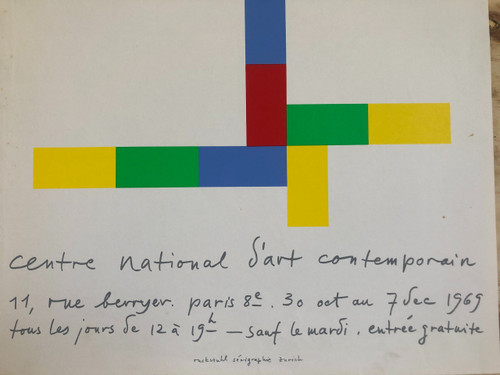 centre national d'art contemporain
11, rue berryer. paris 8e. 30 oct au 7 dec 1969
tous les jours de 12 à 19h — sauf le mardi. entrée gratuite
ruckstuhl sérigraphe zurich